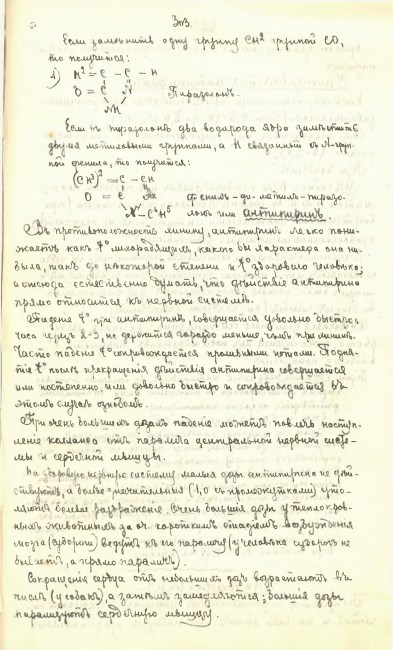 303.
Если замѣнить одну группу CH² группой CO,
то получится:
1) H² = C – C – H
O = C N Пиразолонъ.
NH
Если въ пиразолонѣ два водорода ядра замѣстить
двумя метиловыми группами, а H связанный съ N-груп-
пой фенила, то получится:
(CH³)² = C – C – H
O = C Фенилъ-ди-метилъ-пиразо-
N – C⁶H⁵ лонъ или антипиринъ.
Въ противоположность хинину, антипиринъ легко пони-
жаетъ какъ t° лихорадящихъ, какого бы характера она ни
была, такъ до нѣкоторой степени и t° здоровыхъ человѣка;
а отсюда естественно думать, что дѣйствіе антипирина
прямо относится къ нервной системѣ.
Паденіе t° при антипиринѣ, совершается довольно быстро,
часа черезъ 2-3, но держится гораздо меньше, чѣмъ при хининѣ.
Часто паденіе t° сопровождается проливными потами. Подня-
тіе t° послѣ прекращенія дѣйствія антипирина совершается
или постепенно, или довольно быстро и сопровождается въ
этомъ случаѣ ознобомъ.
При очень большихъ дозахъ паденіе можетъ повлечь наступ-
леніе коллапса отъ паралича центральной нервной систе-
мы и сердечной мышцы.
На здоровую нервную систему малыя дозы антипирина не дѣй-
ствуютъ, а болѣе значительныя (1,0 съ промежутками) уто-
ляютъ болевыя раздраженія. Очень большія дозы у теплокров-
ныхъ животныхъ за оч. короткимъ стадіемъ возбужденія
мозга (судороги) ведутъ къ его параличу (у человѣка судорогъ не
бываетъ, а прямо параличъ).
Сокращенія сердца отъ небольшихъ дозъ возрастаютъ въ
числѣ (у собакъ), а затѣмъ замедляются; большія дозы
парализуютъ сердечную мышцу.